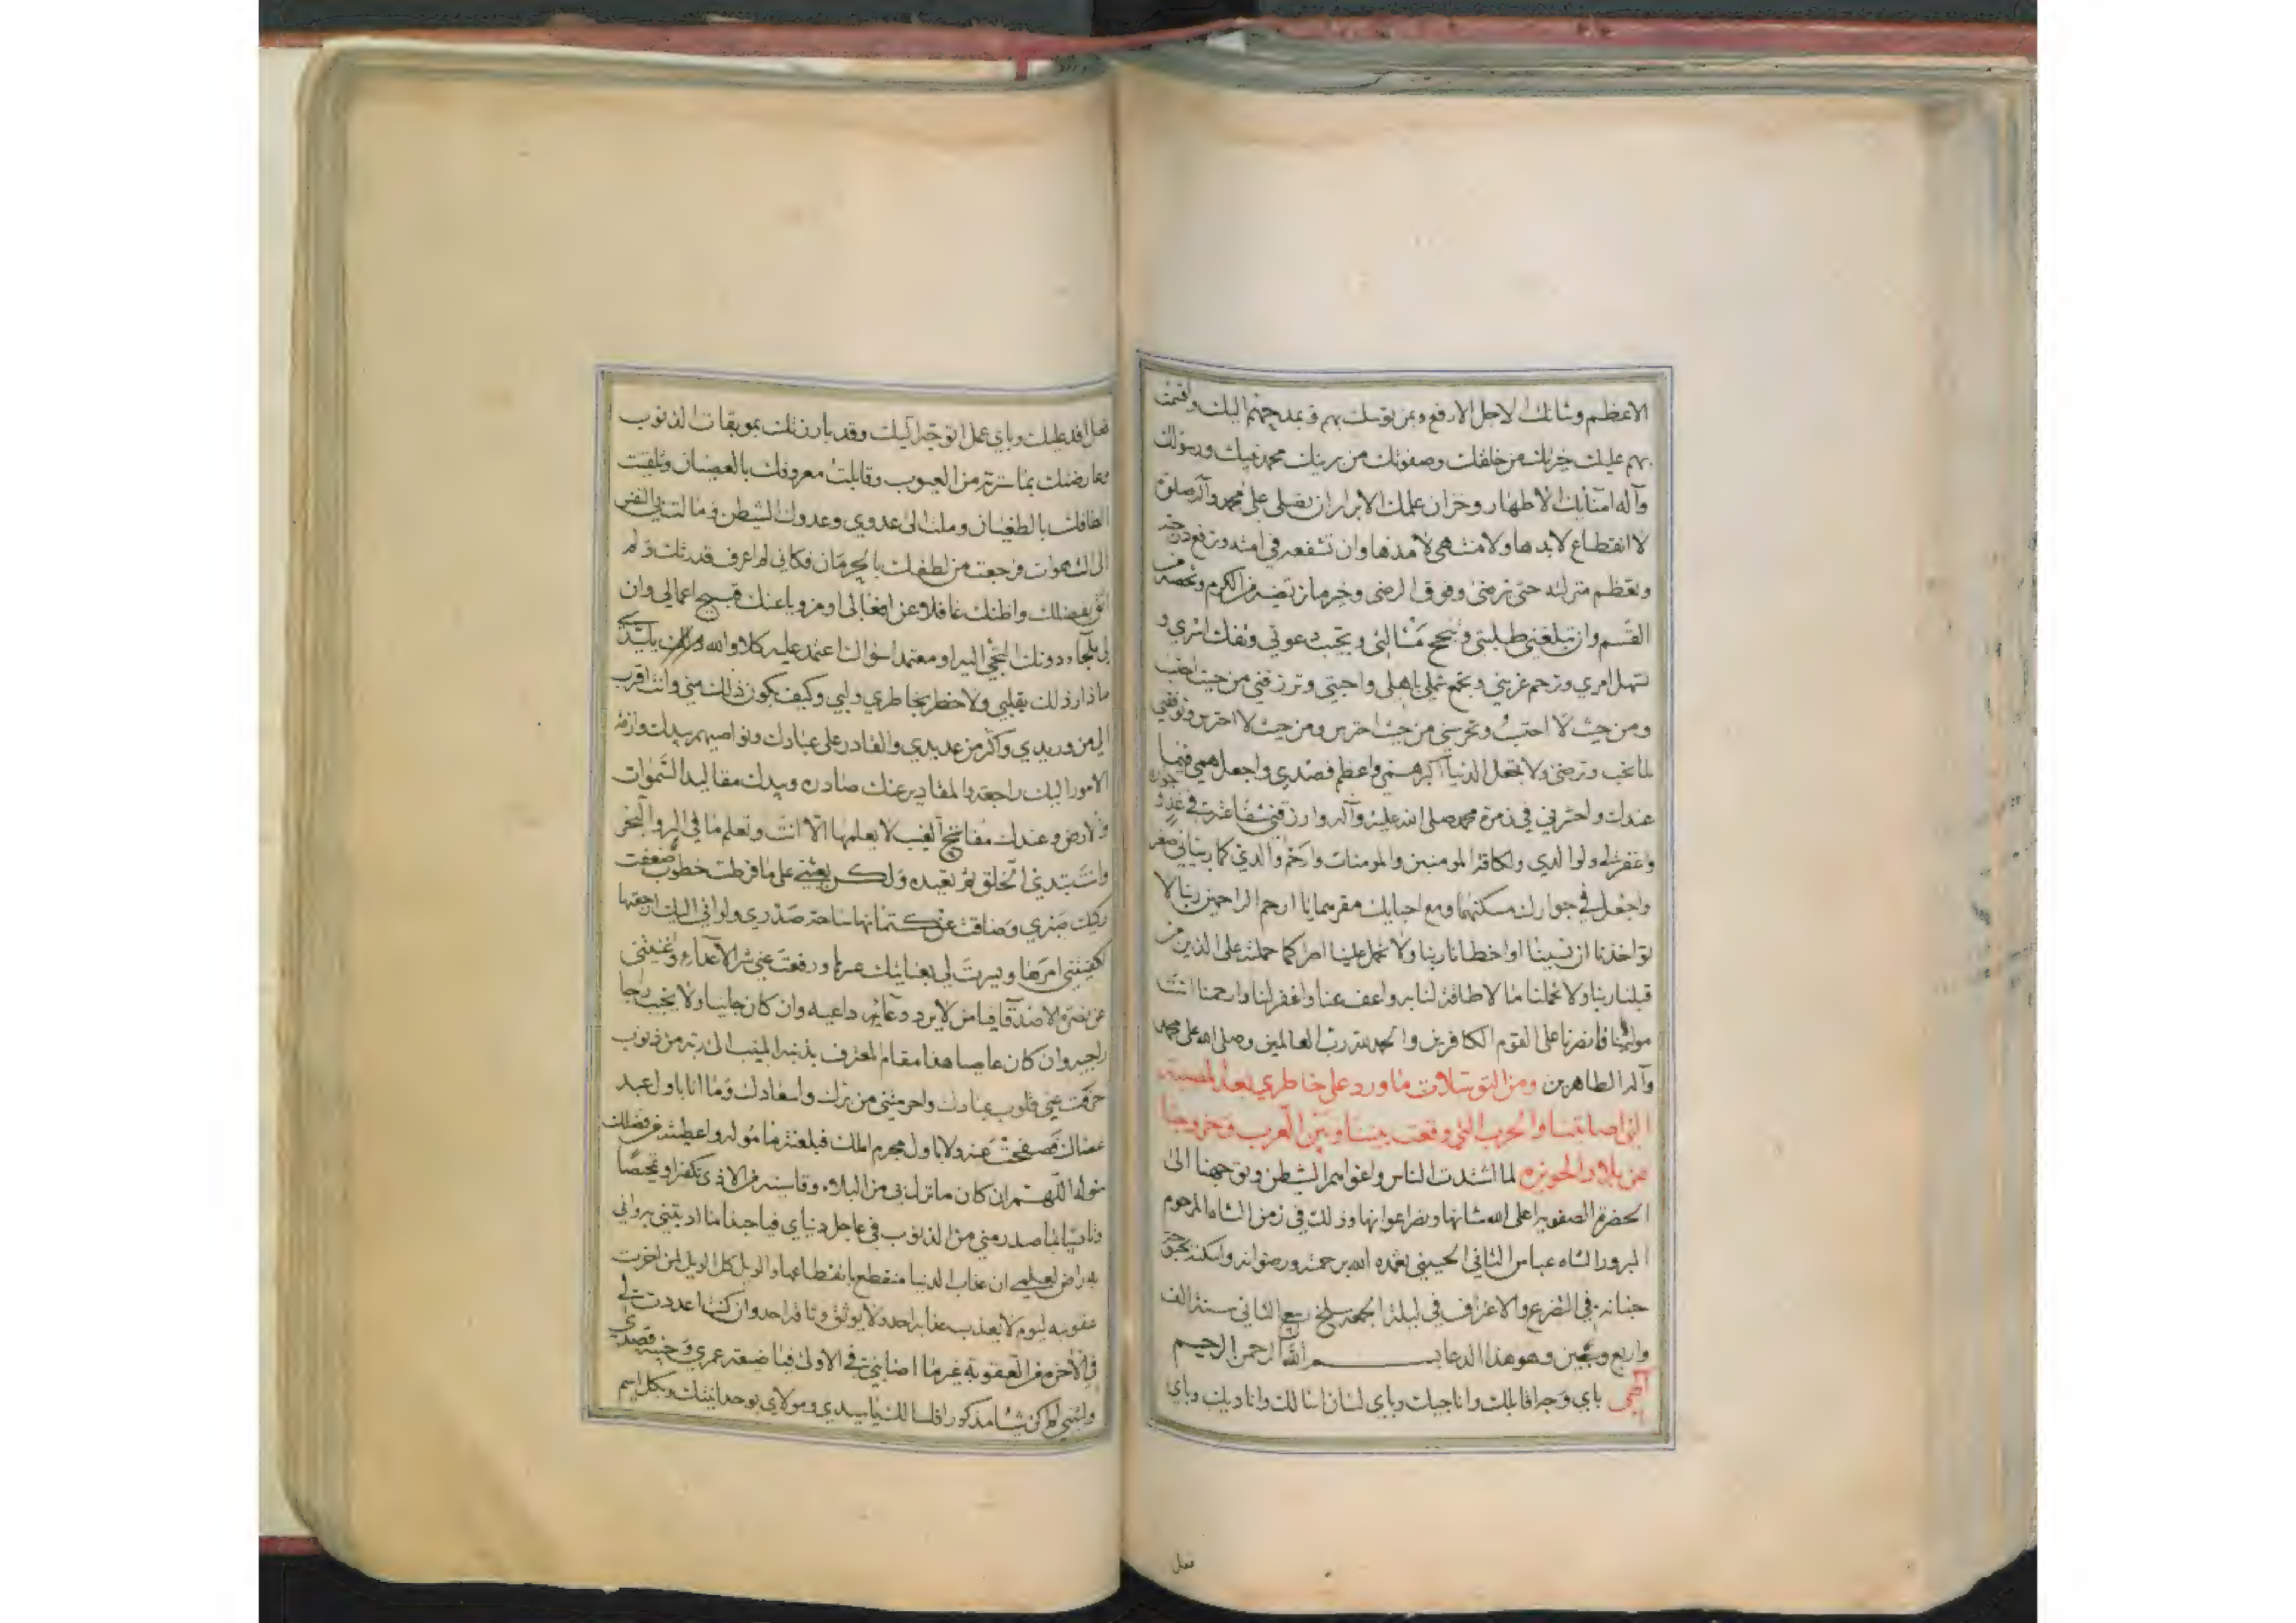 الاعظم وشانك الاجل الارفع وبمن توسلت بهم وتمدحهم اليك واقسمت
بهم عليك خيرتك من خلقك وصفوتك من بريتك محمد نبيك ورسولك
وآله امنائك الاطهار وخزان علمك الابرار ان تصلي على محمد وآله صلوة
لا انقطاع لابدها ولا منتهى لامدها وان تشفعه في امته وترفع درجته
وتعظم منزلته حتى ترضى وفوق الرضى وخير ما ترتضيه من الكرم وتحصه من
القسم وان تبلغني طلبتي وتنجح مسالتي وتجيب دعوتي وتفك اسري و
تسهل امري وترحم غربتي وتجمع شملي باهلي واحبتي وترزقني من حيث احتسب
ومن حيث لا احتسب وتحرسني من حيث احترس ومن حيث لا احترس وتوفقني
لما تحب وترضى ولا تجعل الدنيا اكبر همي واعظم قصدي واجعل همي فيما
عندك واحشرني في زمرة محمد صلى الله عليه وآله وارزقني شفاعته في غد و جواره
واغفر لي ولوالدي ولكافة المومنين والمومنات وارحم والدي كما ربياني صغيرا
واجعل في جوارك مسكنهما ومع احبائك مقرهما يا ارحم الراحمين ربنا لا
تواخذنا ان نسينا او اخطانا ربنا ولا تحمل علينا اصرا كما حملته على الذين من
قبلنا ربنا ولا تحملنا ما لا طاقة لنا به واعف عنا واغفر لنا وارحمنا انت
مولينا فانصرنا على القوم الكافرين والحمد لله رب العالمين وصلى الله على محمد
وآله الطاهرين ومن التوسلات ما ورد على خاطري بعد المصيبة
التي اصابتنا والحرب التي وقعت بيننا وبين العرب وخروجنا
عن بلاد الحويزه لما اشتدت الناس واغواهم الشيطن وتوجهنا الى
الحضرة الصفويه اعلى الله شانها ونصر اعوانها وذلك في زمن الشاه المرحوم
المبرور الشاه عباس الثاني الحسيني تغمده الله برحمته ورضوانه واسكنه بحبوحة
جنانه في التضرع والاعتراف في ليلة الجمعه سلخ ربيع الثاني سنة الف
واربع وستين وهو هذا الدعا بسم الله الرحمن الرحيم
الهي باي وجه اقابلك واناجيك وباي لسان اسالك واناديك وباي
فعل
فعل افد عليك وباي عمل اتوجه اليك وقد بارزتك بموبقات الذنوب
وعارضتك بما سترته من العيوب وقابلت معروفك بالعصيان وتلقيت
الطافك بالطغيان وملت الى عدوي وعدوك الشيطن ومالت بي النفس
الى الشهوات فرجعت من لطفك بالحرمان فكاني لم اعرف قدرتك ولم
اثق بفضلك واظنك غافلا عن افعالي او مزويا عنك قبيح اعمالي وان
لي ملجاء دونك التجي اليه او معتمدا سواك اعتمد عليه كلا والله يا سيدي
ما دار ذلك بقلبي ولا خطر بخاطري ولبي وكيف يكون ذلك مني وانت اقرب
الي من وريدي واكثر من عديدي والقادر على عبادك ونواصيهم بيدك وازمة
الامور اليك راجعه والمقادير عنك صادره وبيدك مقاليد السموات
والارض وعندك مفاتيح الغيب لا يعلمها الا انت وتعلم ما في البر والبحر
وانت تبدئ الخلق ثم تعيده ولكن بعثني على ما فرطت خطوب ضعفت
ركيك صبري وضاقت عن كتمانها ساحة صدري ولو اني اليك ارجعتها
لكفيتني امرها ويسرت لي بعنايتك عسرها ورفعت عني شر الاعداء واغنيتني
عن نصرة الاصدقا فيا من لا يرد دعائه داعيه وان كان جانيا ولا يخيب رجا
راجيه وان كان عاصيا هذا مقام المعترف بذنبه المنيب الى ربه من ذنوب
حرفت عني قلوب عبادك واحرمتني من برك واسعادك وما انا باول عبد
عصاك فصفحت عنه ولا باول مجرم املك فبلغته ماموله واعطيته من فضلك
سوله اللهم ان كان ما نزل بي من البلاء وقاسيته من الاذى تكفيرا وتمحيصا
وتاديبا لما صدر مني من الذنوب في عاجل دنياي فيا حبذا ما ادبتني به واني
به راض لعلمي ان عذاب الدنيا منقطع بانقطاعها والويل كل الويل لمن اخرت
عقوبه ليوم لا يعذب عذابه احد ولا يوثق وثاقه احد وان كنت اعددت لي
في الاخره من العقوبة غير ما اصابني في الاولى فيا ضيعة عمري وخيبة قصدي
وليتني لم اكن شيئا مذكورا فاسالك يا سيدي ومولاي بوحدانيتك وبكل اسم